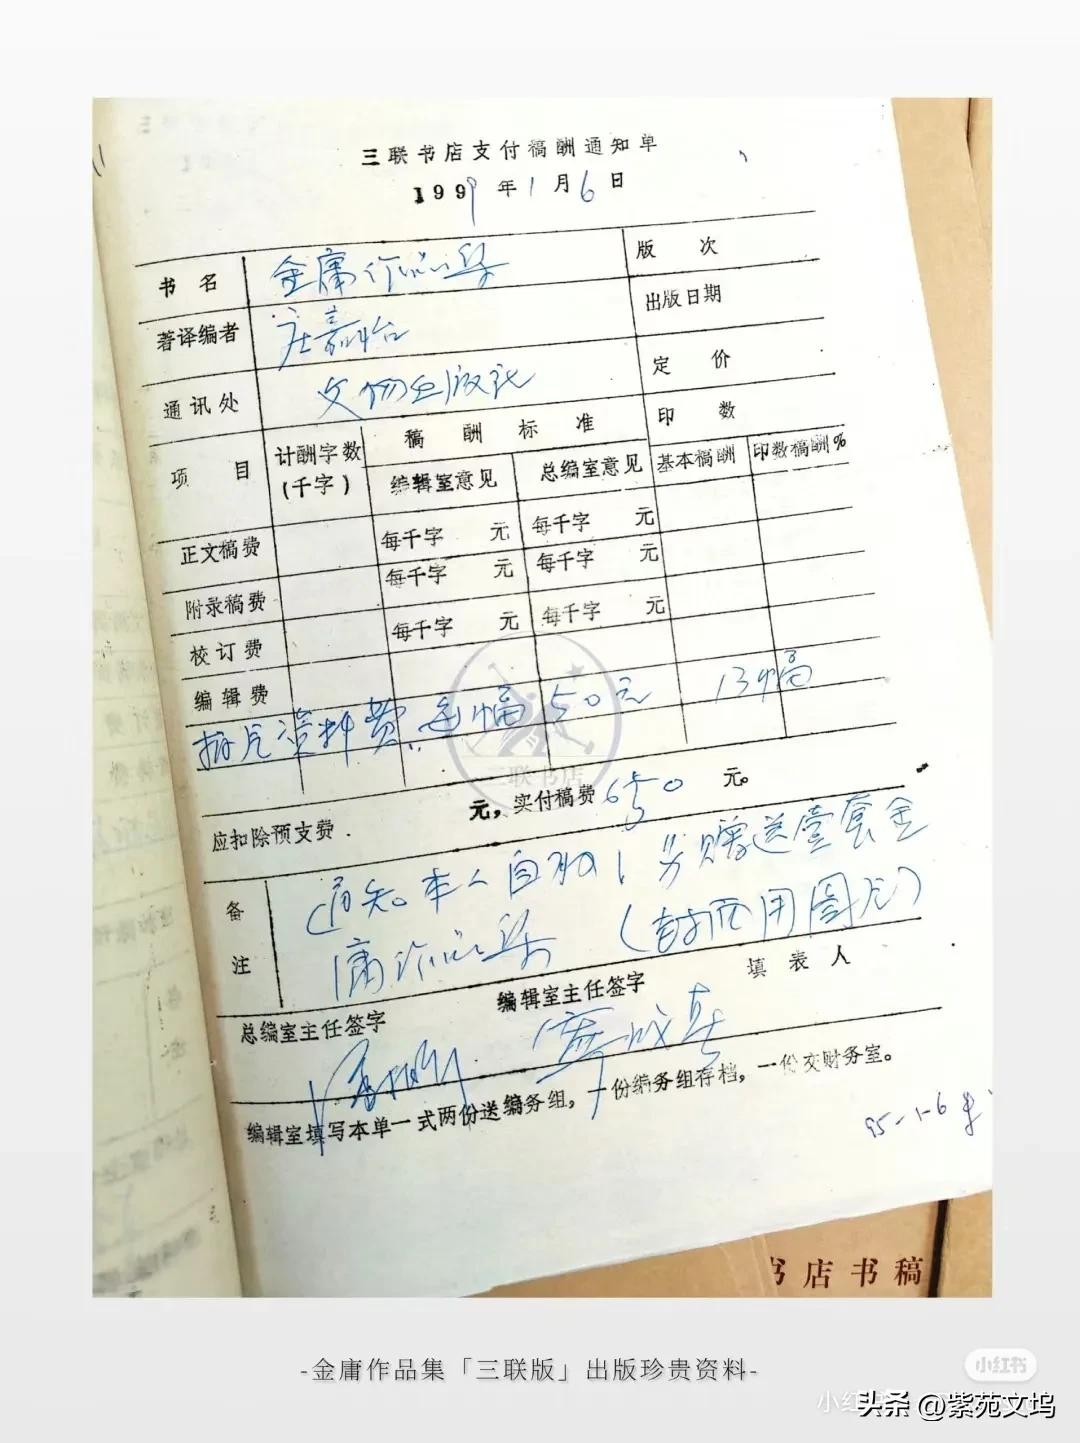 三联书店支付稿酬通知单
199 年1月6日
书名 金庸作品集 版次
著译编者 庄嘉怡 出版日期
通讯处 文物出版社 定价
项目 计酬字数(千字) 稿酬标准 印数
编辑室意见 总编室意见 基本稿酬 印数稿酬%
正文稿费 每千字 元 每千字 元
附录稿费 每千字 元 每千字 元
校订费 每千字 元 每千字 元
编辑费
资料费 每幅50元 13幅
三联书店
应扣除预支费 元，实付稿费650元。
备注 通知本人自取 另赠送壹套金
庸作品集（封面用图片）
总编室主任签字 编辑室主任签字 填表人
编辑室填写本单一式两份送编务组，一份编务组存档，一份交财务室。
95-1-6
书店书稿
-金庸作品集「三联版」出版珍贵资料-
小红书
头条 @紫苑文坞